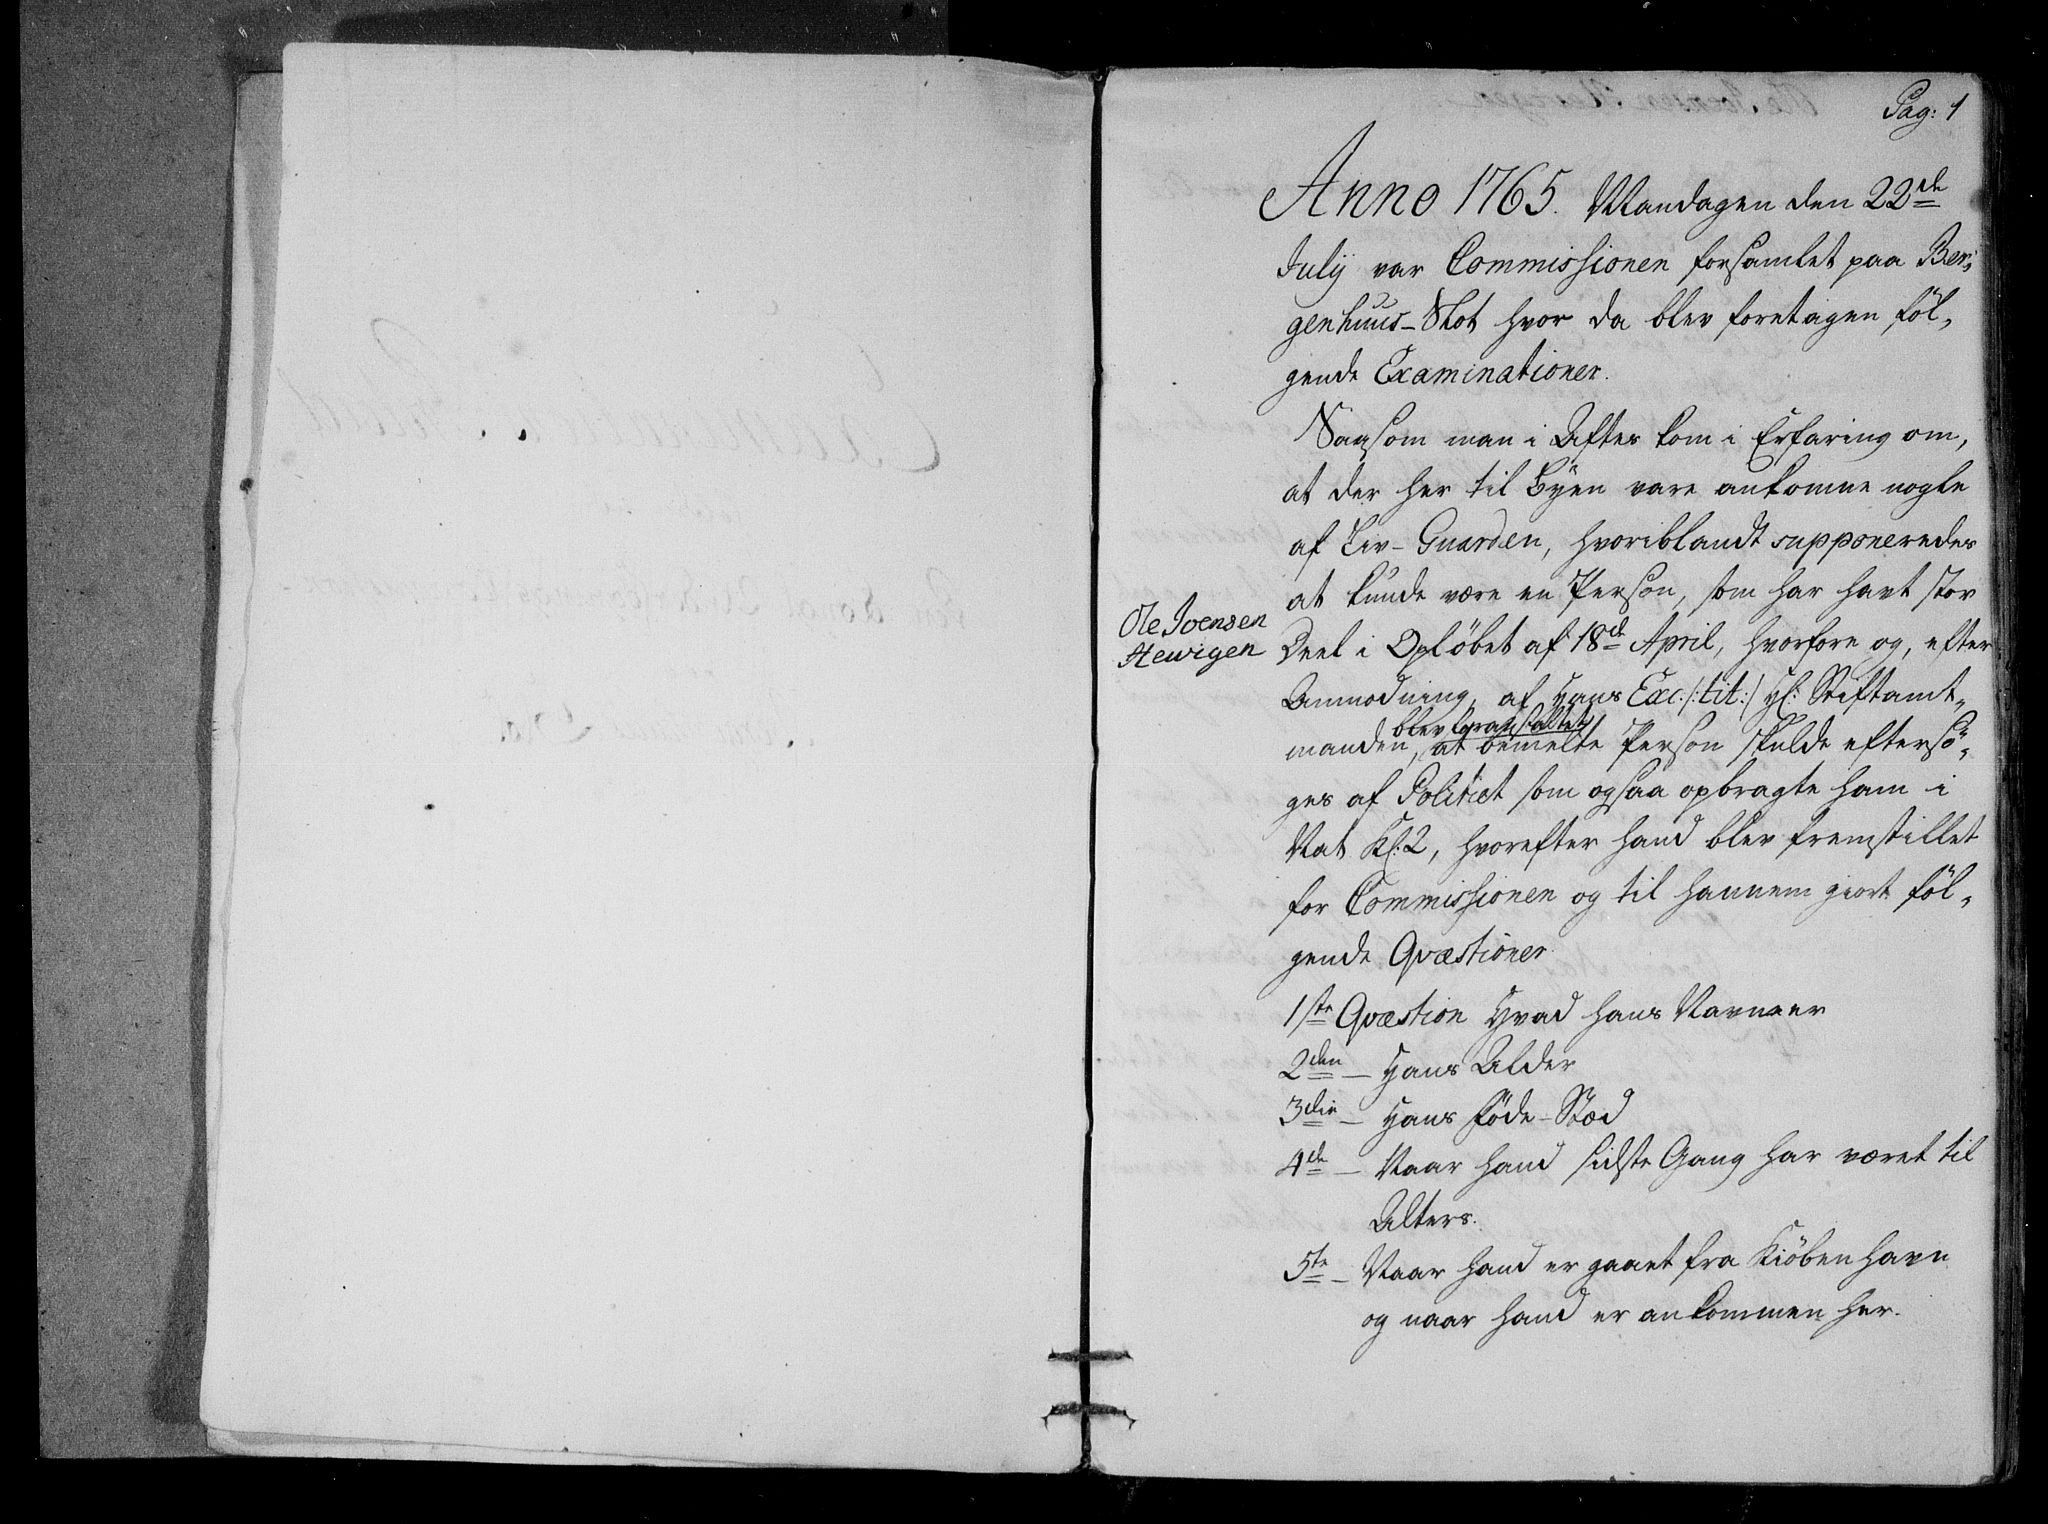 Pag: 1
Anno 1765. Mandagen den 22de
July var Commissionen forsamlet paa Ber-
genhuus-Slot hvor da blev foretagen föl-
gende Examinationer.
Saasom man i Aftes kom i Erfaring om,
at der her til Byen vare ankomne nogle
af Liv-Guarden, hvoriblandt supponeredes
at kunde være en Person, som har havt stor
Ole Ivensen
Hewigen
Deel i Opløbet af 18de April, hvorfore og, efter
Anmodning, af Hans Exc: /:tit:/ Hr: Stiftamt-
blev foranstaltet
manden, at bemelte Person skulde eftersö-
ges af Politiet som ogsaa opbragte ham i
Nat Kl: 2, hvorefter hand blev fremstillet
for Commissionen og til hannem giort föl-
gende Qvæstioner
1ste Qvæstion Hvad hans Navn er
2den – Hans Alder
3die – Hans Föde-Stæd
4de – Naar hand sidste Gang har været til
Alters.
5te – Naar hand er gaaet fra Kiöbenhavn
og naar hand er ankommen her.